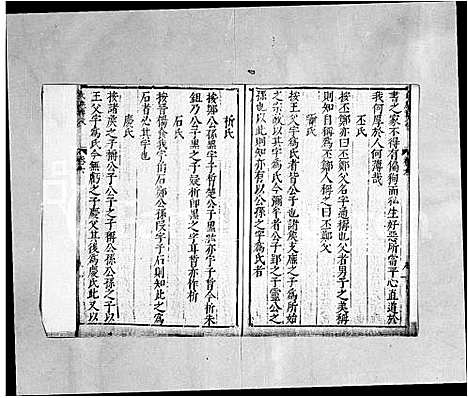 書之家不得有偏狥而私生好惡所當平心直道於
我何厚於人何薄哉
丕氏
按丕鄭亦曰丕鄭父名字通稱也父者男子之美稱
則知自稱為丕鄭人稱之曰丕鄭父
氏
按王父字為氏者皆公子也諸矦支庶之子為所始
之宗故以其字為氏今彌牟者公子郢之子靈公之
孫也以此則知亦有以公孫之子為氏者
析氏
按鄭公孫黑字子晳楚公子黑肱亦字子晳今析朱
鉏乃公子黑之子疑析即黑之字耳晳亦作析
石氏
按晉僖矦字伯石鄭公孫段字子石則知此之為
石者必其字也
慶氏
按諸矦之子稱公子公子之子稱公孫公孫之子以
王父字為氏今無虧之子慶父其後為慶氏此又以